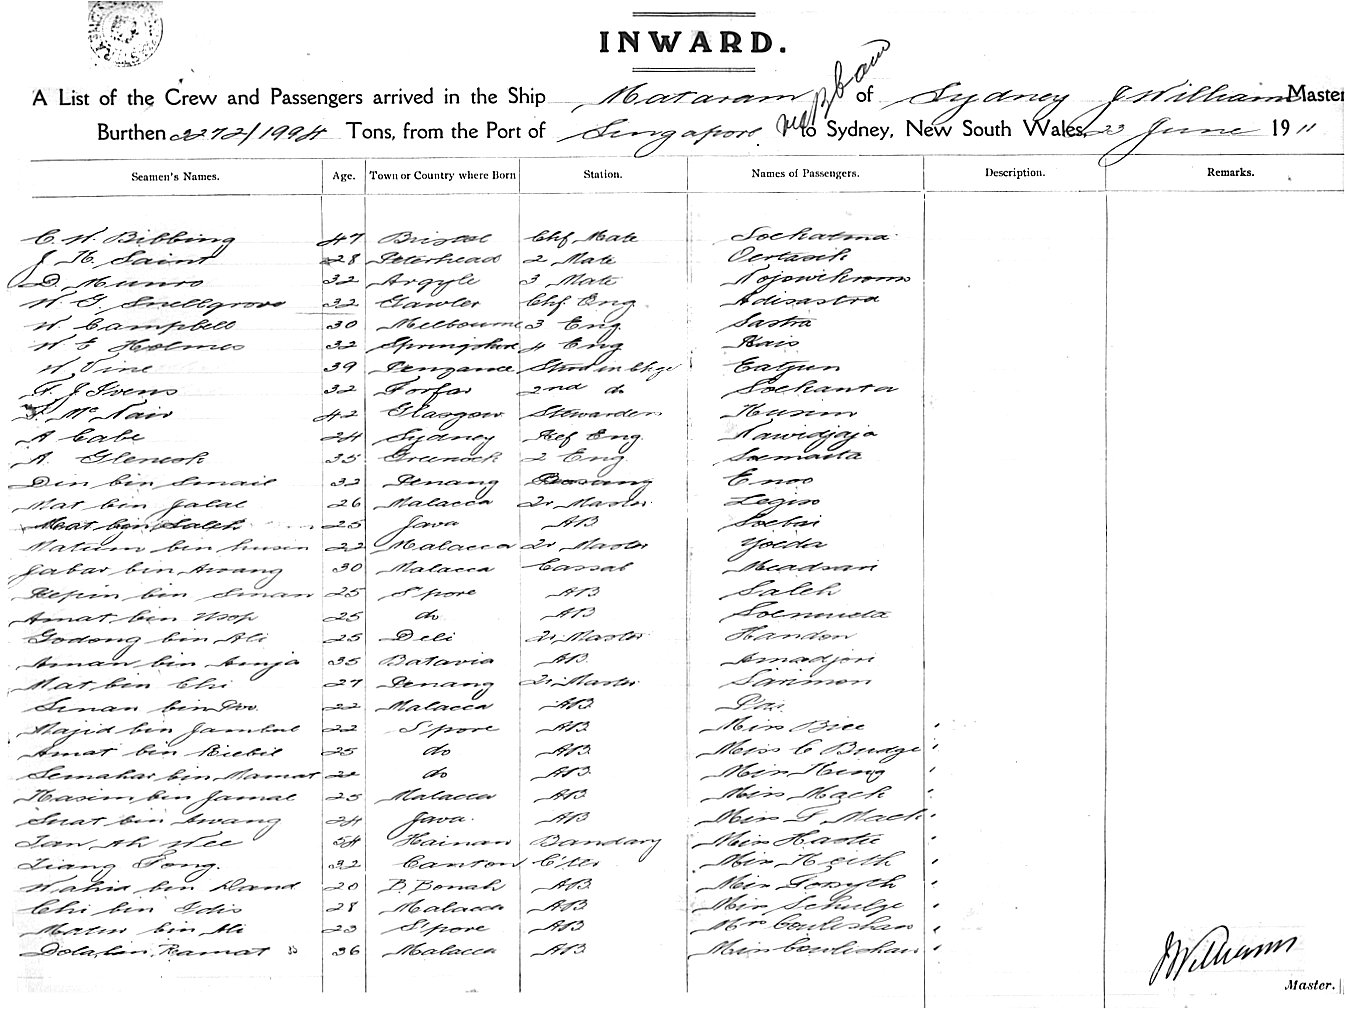 INWARD.
A List of the Crew and Passengers arrived in the Ship Mataram of Sydney J Williams Master
via Bbane
Burthen 2272/1994 Tons, from the Port of Singapore to Sydney, New South Wales, 23 June 1911
Seamen's Names. Age. Town or Country where Born Station. Names of Passengers. Description. Remarks.
C. W. Bibbing 47 Bristol Chf Mate Soekatma
J H Saint 28 Peterhead 2 Mate
D. Munro 32 Argyle 3 Mate
W G Snellgrove 32 Gawler Chf. Eng. Adisastra
W. Campbell 30 Melbourne 3 Eng. Sastra
W F Holmes 32 4 Eng Kais
W Vine 39 Penzance Stwd in Chge Eatjun
F. J Ivens 32 Forfar 2nd do Soekanta
McNair 42 Glasgow Stewardess
A Cabe 24 Sydney Ref Eng. Nawidjaja
A. 35 Greenock 2 Eng.
Din bin Smail 32 Penang Enoo
Mat bin Jalal 26 Malacca Qr Master Legiso
Mat bin Saleh 25 Java AB
bin husin 22 Malacca Qr Master Yoida
Jabar bin Awang 30 Malacca Cassab Meadsari
bin Sinan 25 S'pore AB Saleh
Amat bin Usop 25 do AB
Godong bin Ali 25 Deli Qr Master Handon
Aman bin Amja 35 Batavia AB. Amadjori
Mat bin Chi 27 Penang Qr Master Sarimon
Sinan bin 22 Malacca AB
Majid bin Jambul 22 S'pore AB Miss Bice '
Amat bin 25 do AB. Miss C Budge '
Semahar bin Mamat 22 do AB. Miss King '
Kasim bin Jamal 25 Malacca AB Miss Mack '
Suat bin Awang 24 Java. AB Miss F Mack '
Tan Ah Wee 54 Hainan Bandary Miss '
Liang Fong. 32 Canton C'ter Miss Keith '
Wahid bin Daud 20 AB. Miss Forsyth '
Chi bin Idis 28 Malacca AB Miss Schulze '
bin Ali 23 S'pore AB Mrs Coulishaw '
bin Ramat 36 Malacca AB Miss Coulishaw '
J Williams
Master.